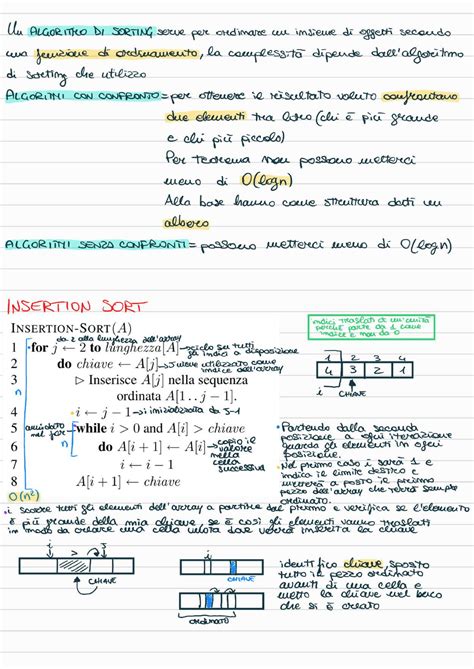 Un ALGORITMO DI SORTING serve per ordinare un insieme di oggetti secondo
una funzione di ordinamento, la complessità dipende dall'algoritmo
di sorting che utilizzo
ALGORITMI CON CONFRONTO = per ottenere il risultato voluto confrontano
due elementi tra loro (chi è più grande
e chi più piccolo)
Per teorema non possono metterci
meno di O(logn)
Alla base hanno come struttura dati un
albero
ALGORITMI SENZA CONFRONTI = possono metterci meno di O(logn)
INSERTION SORT
INSERTION-SORT(A)
da 2 alla lunghezza dell'array
1 for j ← 2 to lunghezza[A] → ciclo su tutti
gli indici a disposizione
2 do chiave ← A[j] → j viene utilizzato come
indice dell'array
3 ▷ Inserisce A[j] nella sequenza
ordinata A[1 . . j − 1].
n
4 i ← j − 1 → i inizializzata da J-1
5 while i > 0 and A[i] > chiave
annidato
nel for
n
6 do A[i + 1] ← A[i] → copio il
valore
nella
cella
successiva
7 i ← i − 1
8 A[i + 1] ← chiave
O(n²)
indici traslati di un'unità
perché parte da 1 come
indice e non da 0
1 2 3 4
4 3 2 1
i
CHIAVE
• Partendo dalla seconda
posizione a ogni iterazione
guarda gli elementi in ogni
posizione.
• Nel primo caso i sarà 1 e
indica il limite destro e
metterà a posto il primo
pezzo dell'array che verrà sempre
ordinato.
• i scorre tutti gli elementi dell'array a partire dal primo e verifica se l'elemento
è più grande della mia chiave, se è così gli elementi vanno traslati
in modo da creare una cella vuota dove verrà inserita la chiave
i > j
CHIAVE
i
CHIAVE
ORDINATO
identifico chiave, sposto
tutto il pezzo ordinato
avanti di una cella e
metto la chiave nel buco
che si è creato